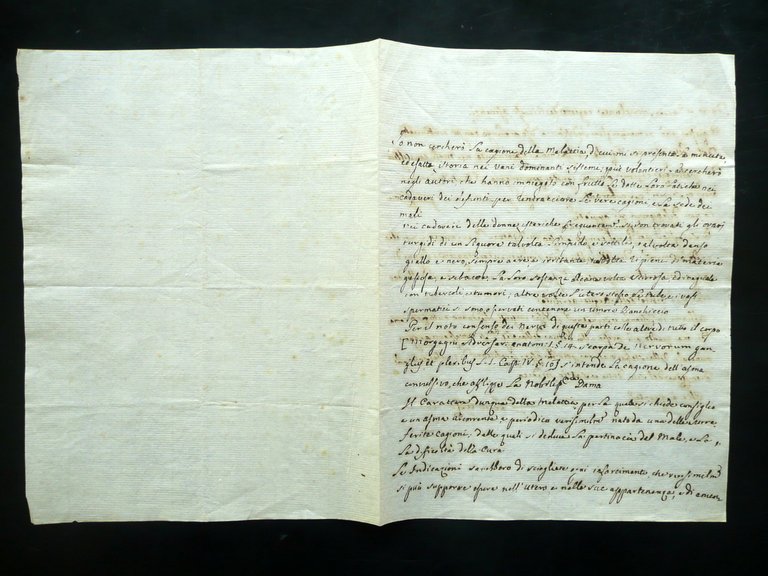 Io non cercherò la cagione della Malattia di cui mi si presenta la
ed esatta storia nei vani dominanti sistemi, più volentieri la cercherò
negli autori che hanno impiegato con frutto le dotte loro fatiche nei
cadaveri dei defonti per rintracciare le vere cagioni e la sede dei
mali
Nei cadaveri delle donne isteriche frequentem.e si son trovati gli ovari
turgidi di un liquore talvolta limpido e sottile, talvolta denso
giallo e nero, sempre acre e irritante ripieni d'materia
gessosa, e sebacea la loro sostanza alcune volte ed ineguale
con tubercoli e tumori, altre volte l'utero stesso le tube e i vasi
spermatici si sono osservati contenere un umore bianchiccio
Per il noto consenso dei nervi di queste parti colle altre di tutto il corpo
[Morgagni Adversar. anatom. Scarpa de Nervorum gan
gliis et plexibus L. I. Cap. IV § 10] s'intende la cagione dell'asma
convulsivo, che afflige la Nobiliss.a Dama
Il Carattere dunque della malattia per la quale si chiede consiglio
è un asma ricorrente e periodico verisimilm.e nato da una delle sovra
riferite cagioni, dalle quali si deduce la pertinacia del Male, e la
la dificoltà della Cura
Le Indicazioni sarebbero di sciogliere ogni infarcimento che verisimilm.e
si può supporre essere nell'utero e nelle sue appartenenze, e di